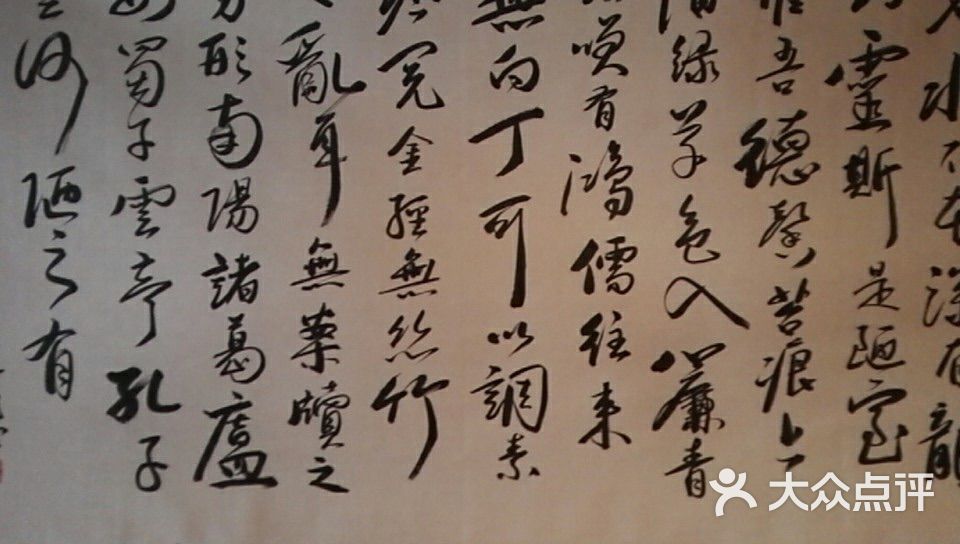 水不在深有龍
靈斯是陋室
惟吾德馨苔痕上
階綠草色入簾青
笑有鴻儒往來
無白丁可以調素
閱金經無絲竹
亂耳無案牘之
形南陽諸葛廬
蜀子雲亭孔子
何陋之有
大众点评